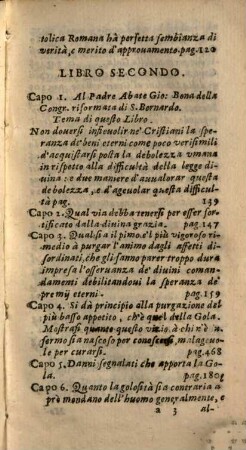 tolica Romana hà perfetta sembianza di
verità, e merito d'approuamento.pag.120
LIBRO SECONDO.
Capo 1. Al Padre Abate Gio: Bona della
Congr. riformata di S. Bernardo.
Tema di questo Libro.
Non douersi infieuolir ne' Cristiani la spe-
ranza de' beni eterni come poco verisimili
d'acquistarsi posta la debolezza vmana
in rispetto alla difficultà della legge diui-
na: e due maniere d'aualorar questa
debolezza, e d'ageuolar questa difficul-
tà pag. 139
Capo 2. Qual via debba tenersi per esser for-
tificato dalla diuina grazia. pag.147
Capo 3. Qual sia il primo, e'l più vigoroso ri-
medio à purgar l'animo dagli affetti di-
sordinati, che gli fanno parer troppo dura
impresa l'osseruanza de' diuini coman-
damenti debilitandoui la speranza de'
premij eterni. pag.159
Capo 4. Si dà principio alla purgazione del
più basso appetito, ch'è quel della Gola.
Mostrasi quanto questo vizio, à chi n'è in-
fermo sia nascoso per conoscersi, malageuo-
le per curarsi. pag.168
Capo 5. Danni segnalati che apporta la Go-
la. pag.180
Capo 6. Quanto la golosità sia contraria al
prò mondano dell'huomo generalmente, e
a 3 al-